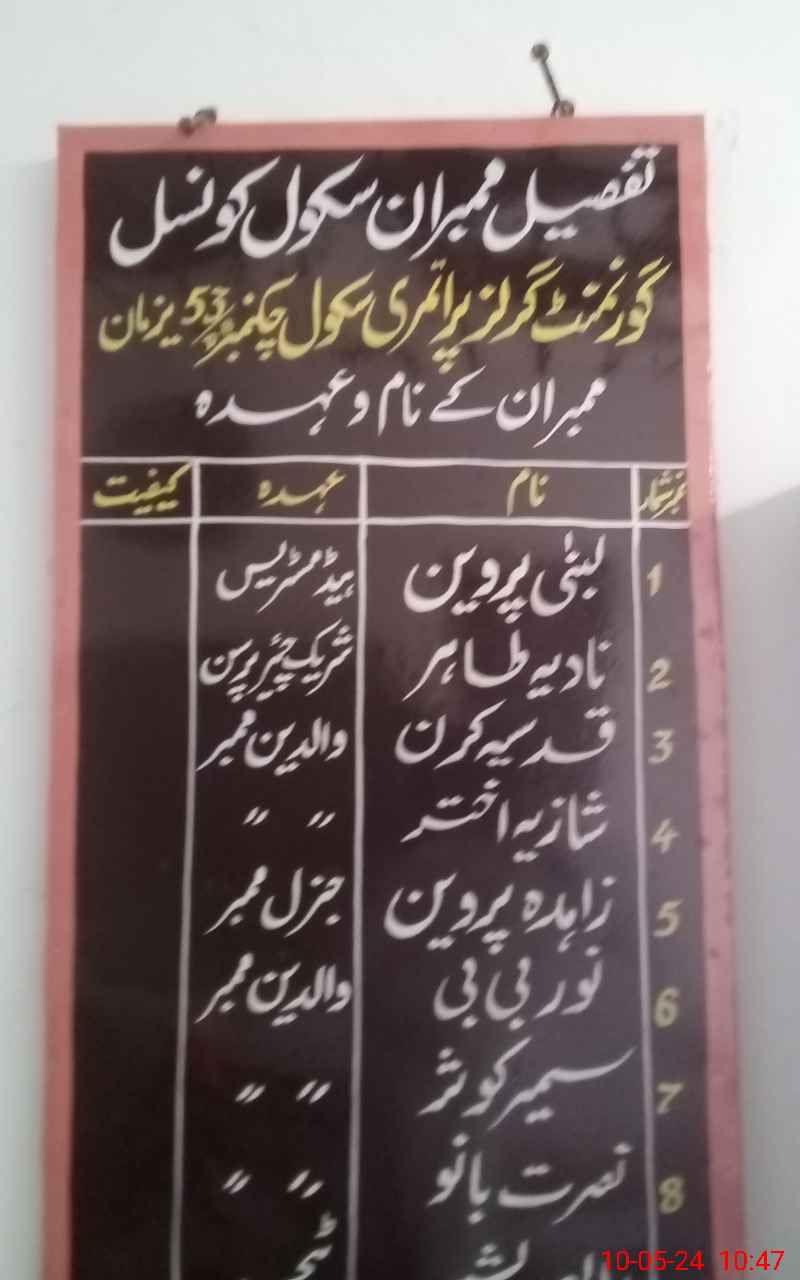 تفصیل ممبران سکول کونسل
گورنمنٹ گرلز پرائمری سکول چکنمبر 53 یزمان
ممبران کے نام و عہدہ
نمبر شمار نام عہدہ کیفیت
1 لبنیٰ پروین ہیڈ مسٹریس
2 نادیہ طاہر شریک چئیر پرسن
3 قدسیہ کرن والدین ممبر
4 شازیہ اختر " "
5 زاہدہ پروین جنرل ممبر
6 نور بی بی والدین ممبر
7 سمیر کوثر " "
8 نصرت بانو " "
10-05-24 10:47